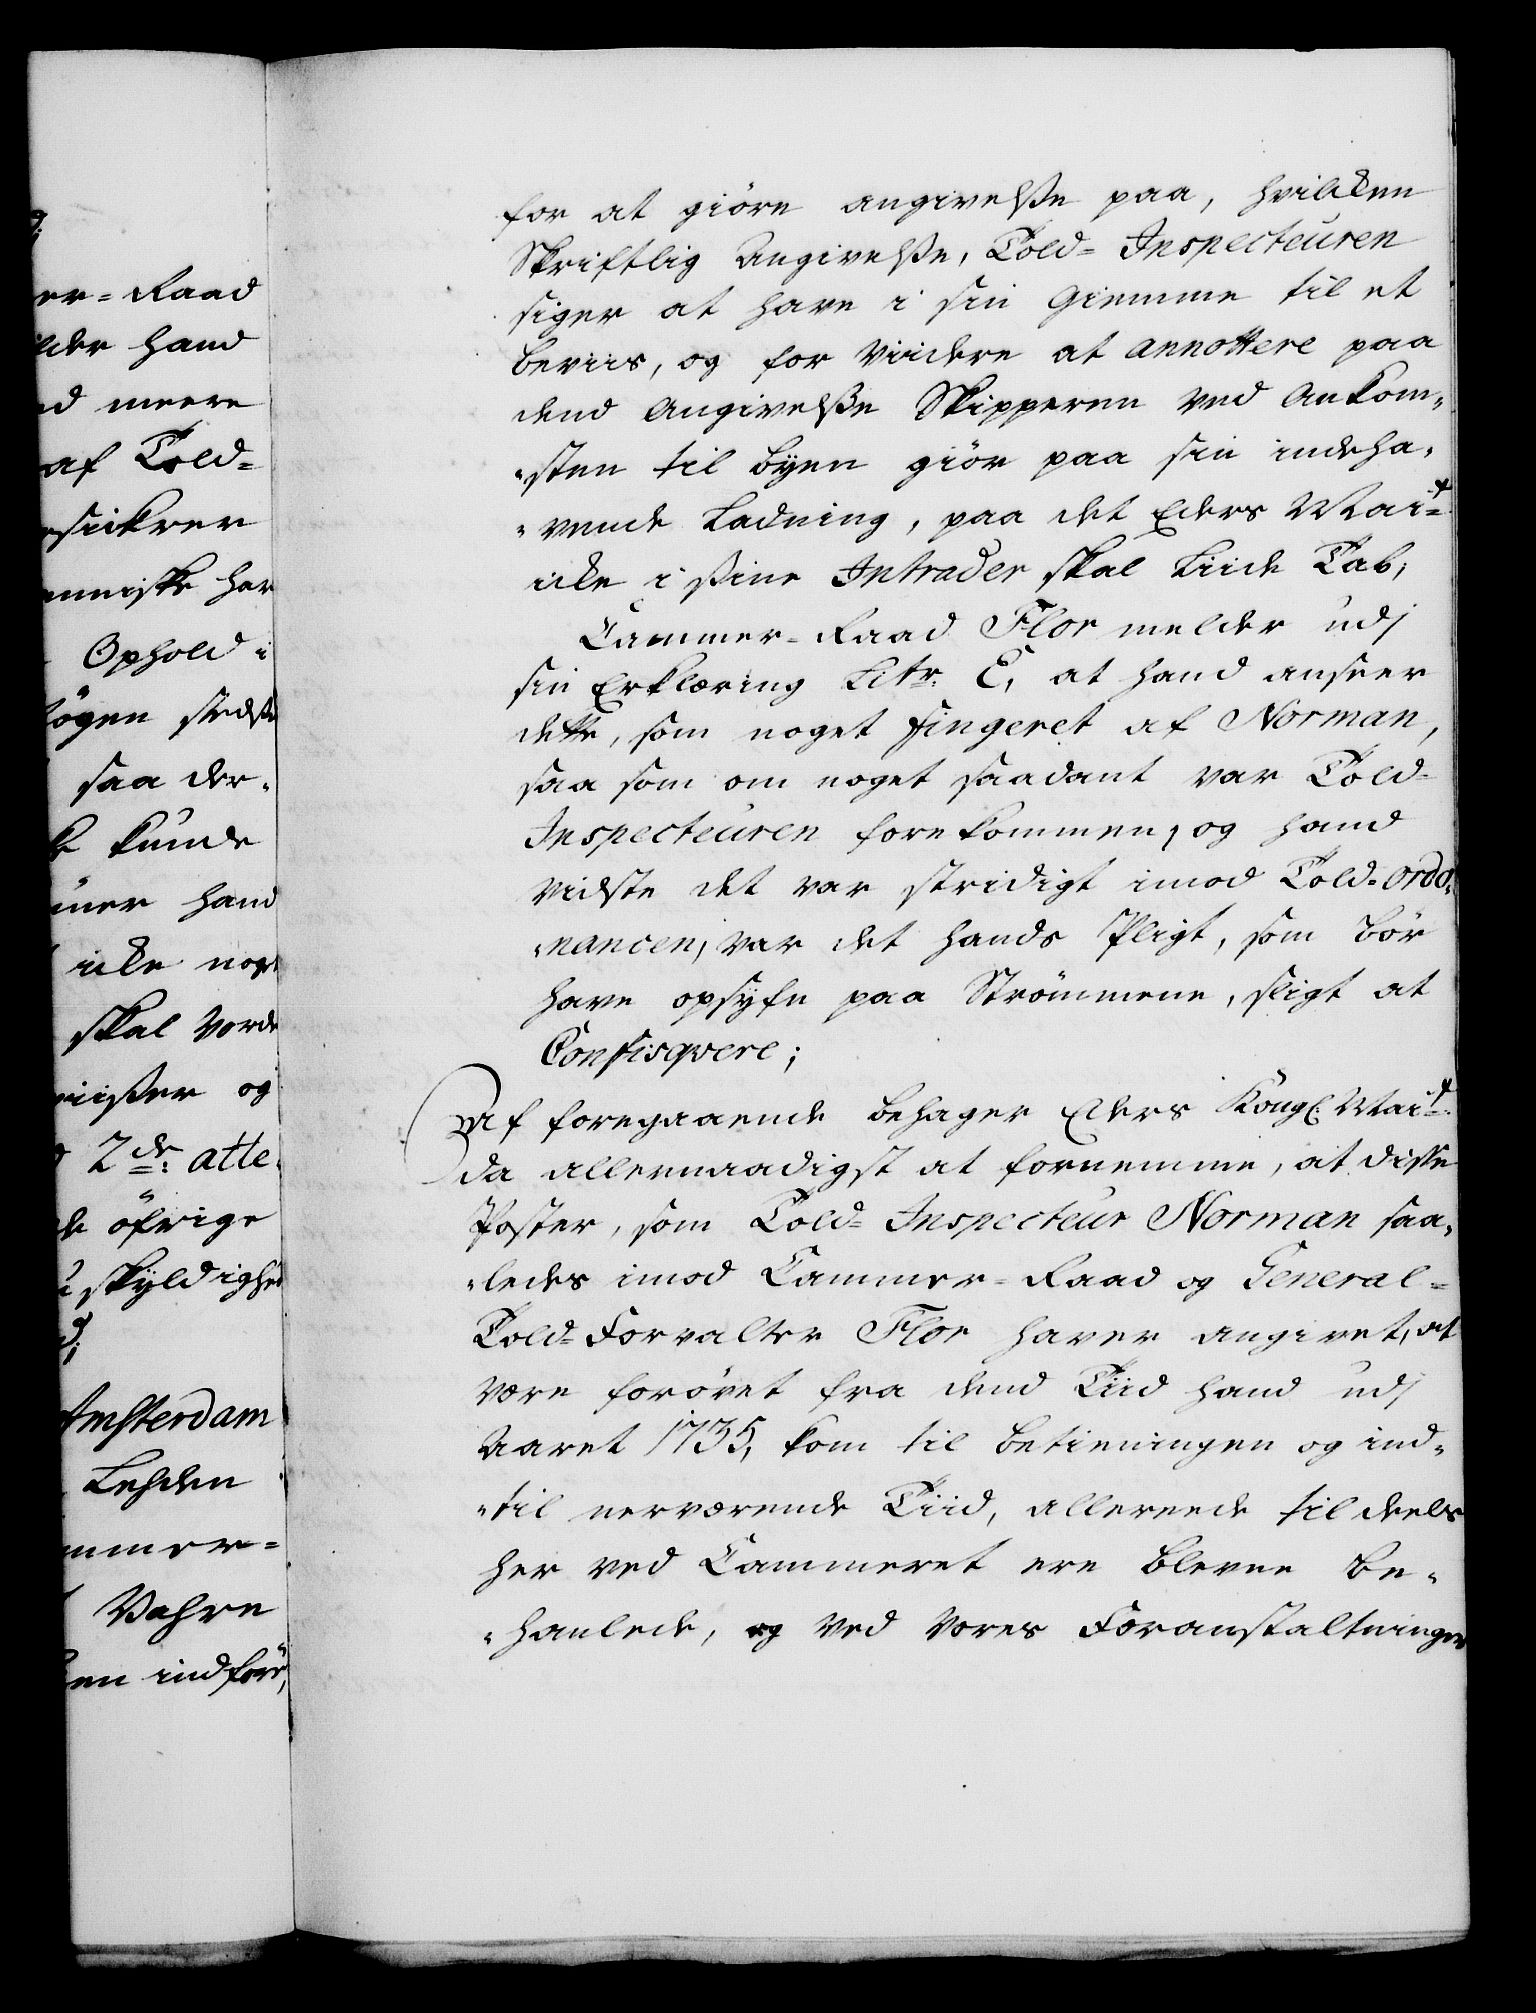 er-Raad
hand
d meere
af Told-
siikrer
menniske har
Ophold i
saa der-
kunde
hand
icke nog
skal vorde
og
2de: atte-
de öfrige
skÿldighed
Amsterdam
Lehden
mmer-
Vahre
en indföre,
for at giöre angivelße paa, hvilcken
Skriftlig Angivelße, Told- Inspecteuren
siger at have i sin Giemme til et
beviis, og for viidere at annottere paa
dend Angivelße Skipperen ved Ankom-
-sten til bÿen giör paa sin indeha-
-vende Ladning, paa det Eders Mait
icke i ßine Intrader skal Liide Tab;
Cammer-Raad Flor melder udj
sin Erklæring Litr. E, at hand anseer
dette, som noget fingeret af Norman,
saa som om noget saadant var Told-
Inspecteuren forekommen, og hand
vidste det var stridigt imod Told-Ordo-
-nancen, var det hands Pligt, som bör
have opsÿn paa Strömmene, sligt at
Confisqvere;
Af foregaaende behager Eders Kongl: Mait:
da allernaadigst at fornemme, at disse
Poster, som Told- Inspecteur Norman saa-
-ledes imod Cammer-Raad og General-
Told-Forvalter Flor haver angivet, at
være forövet fra dend Tiid hand udj
Aaret 1735, kom til betieningen og ind-
-til nerværende Tiid, allereede til deels
her ved Cammeret ere blevne be-
-hanlede, og ved vores Foranstaltninger